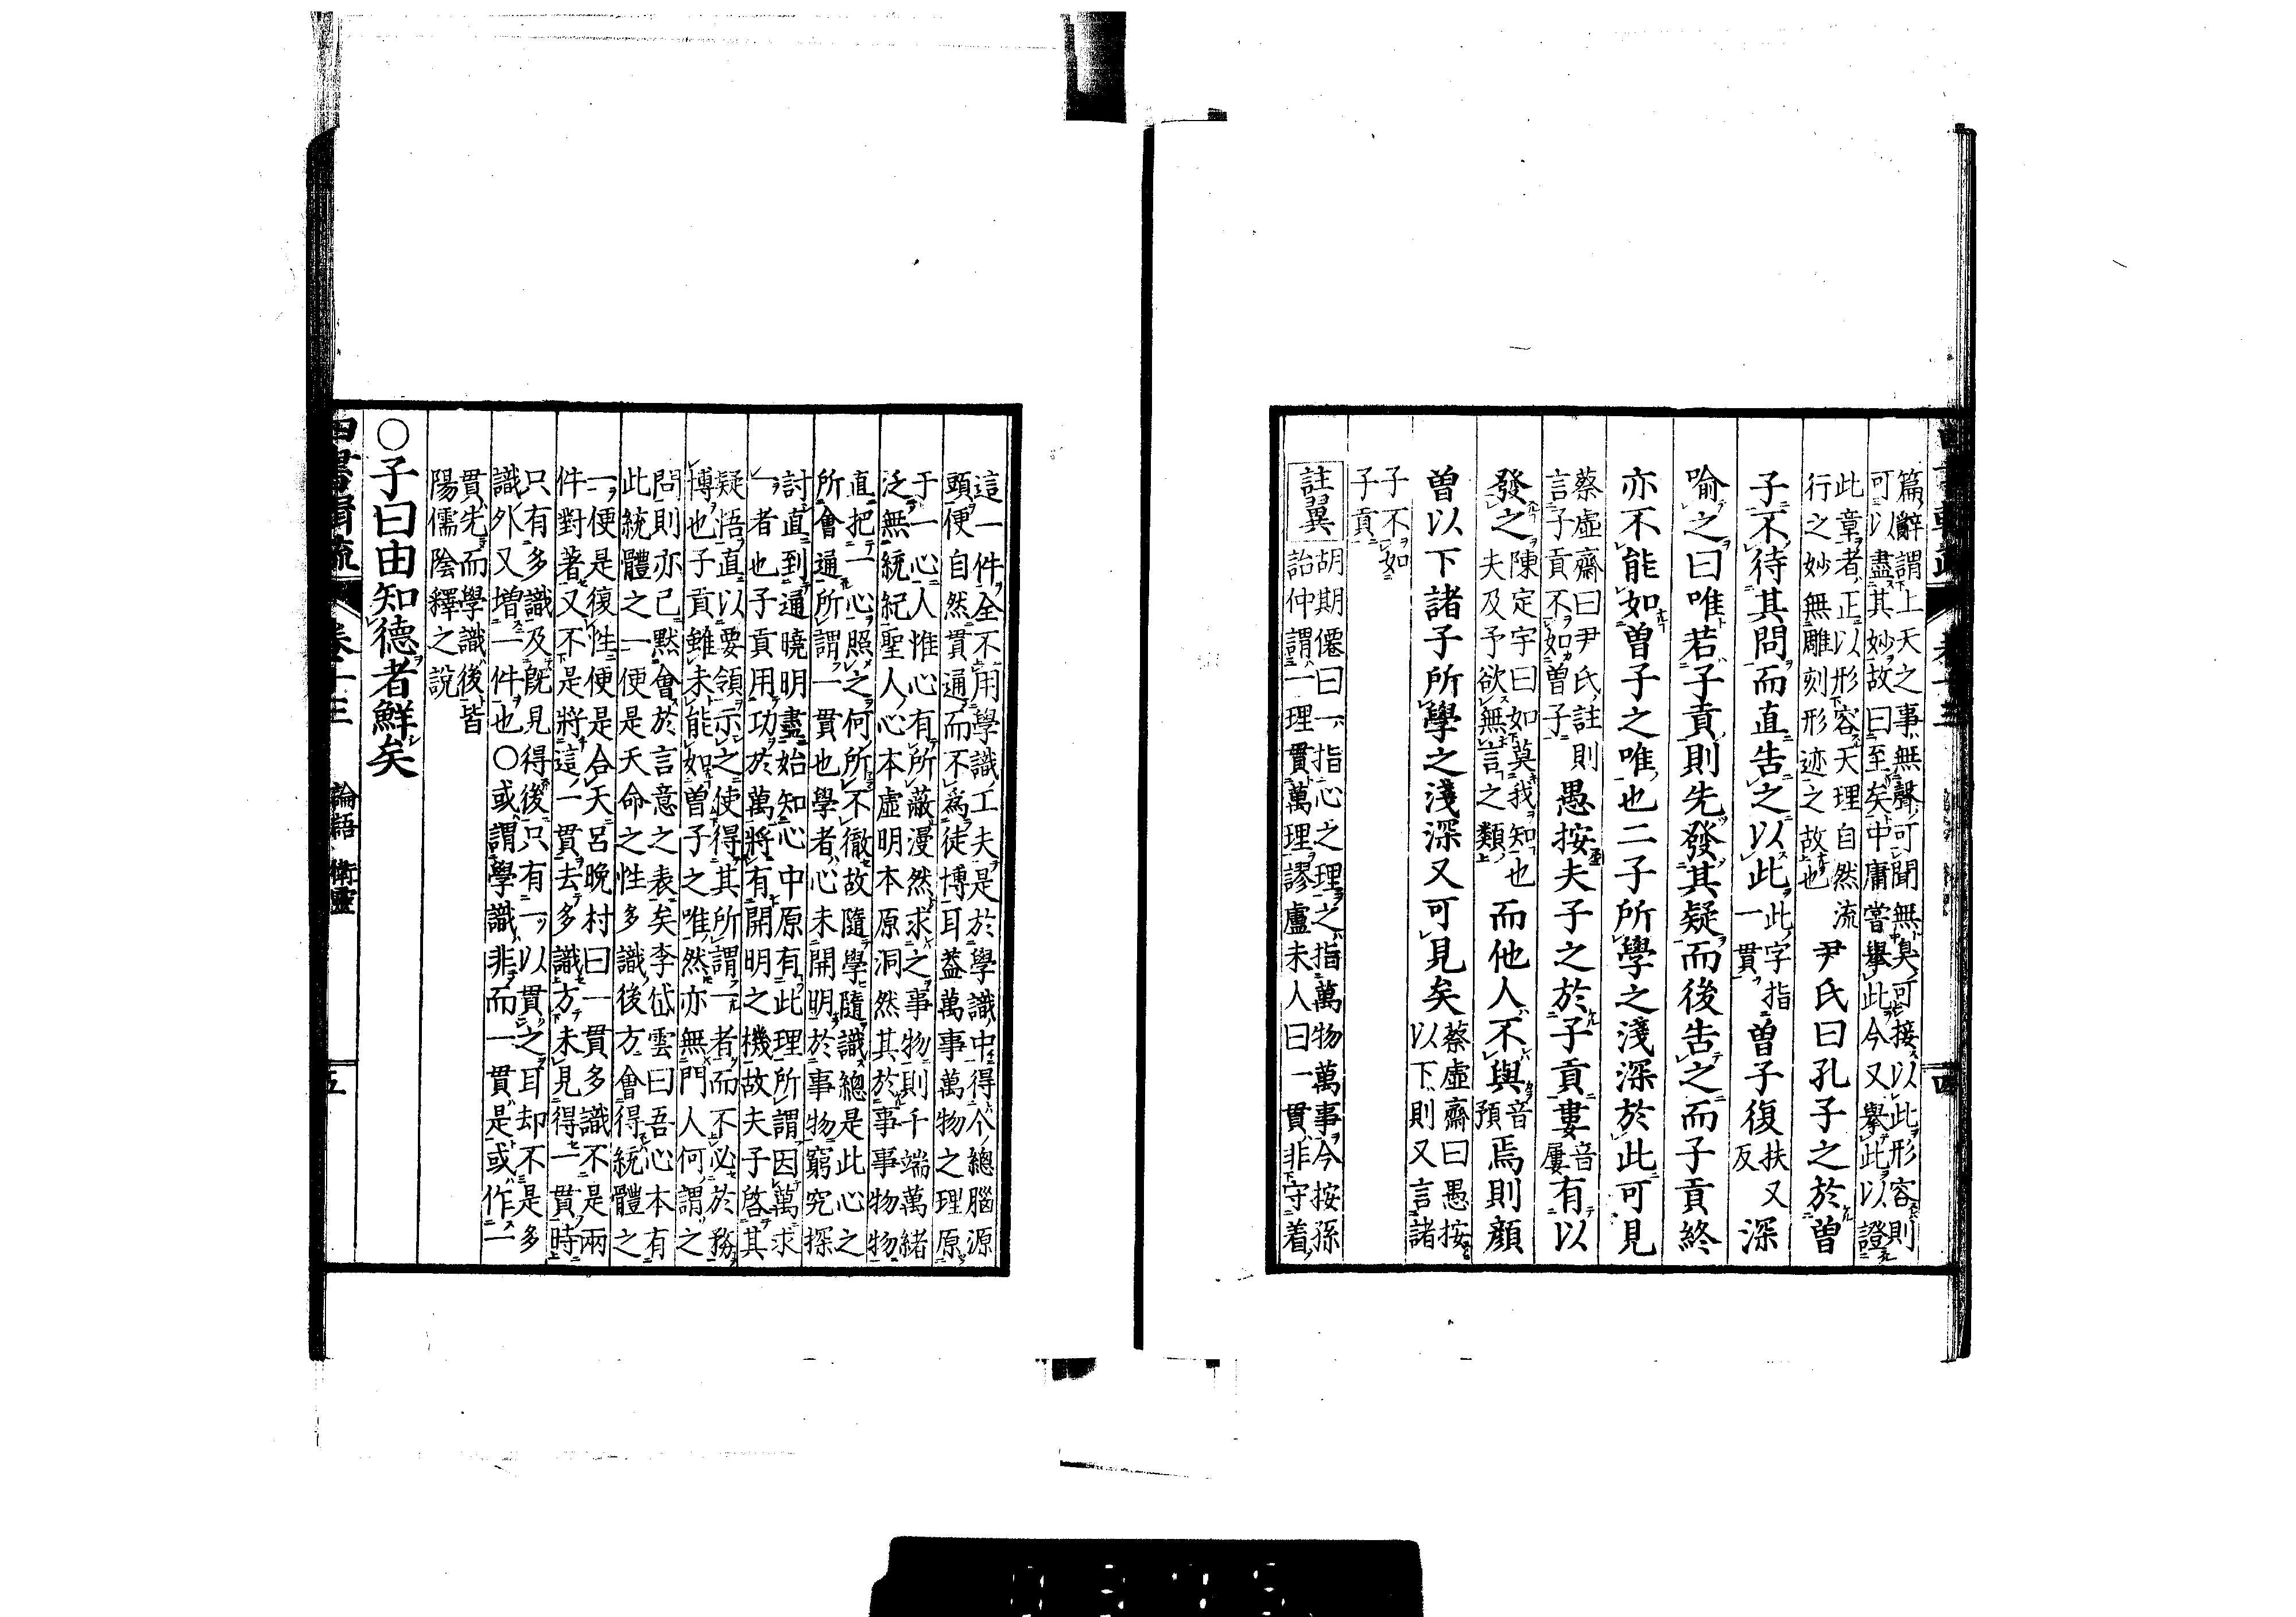 篇辭謂上天之事無聲可聞無臭可接以此形容則
可以盡其妙故曰至矣中庸嘗擧此今又擧此以證
此章者正以形容天理自然流
行之妙無雕刻形迹之故也
尹氏曰孔子之於曽
子不待其問而直告之以此
此字指
一貫
曽子復
扶又
反
深
喩之曰唯若子貢則先發其疑而後告之而子貢終
亦不能如曽子之唯也二子所學之淺深於此可見
蔡虛齋曰尹氏註則
言子貢不如曽子
愚按夫子之於子貢婁
音
屢
有以
發之
陳定宇曰如莫我知也
夫及予欲無言之類
而他人不與
音
預
焉則顔
曽以下諸子所學之淺深又可見矣
蔡虛齋曰愚按
以下則又言諸
子不如
子貢
註翼
胡期僊曰一指心之理之指萬物萬事今按孫
詒仲謂一理貫萬理謬盧未人曰一貫非守着
這一件全不用學識工夫是於學識中得个總腦源
頭便自然貫通而不爲徒博耳葢萬事萬物之理原
于一心人惟心有所蔽漫然求之事物則千端萬緒
泛無統紀聖人心本虛明本原洞然其於事事物物
直把一心照之何所不徹故隨學隨識總是此心之
所會通所謂一貫也學者心未開明於事物窮究探
討直到通曉明盡始知心中原有此理所謂因萬求
一者也子貢用功於萬將有開明之機故夫子啓其
疑悟直以要領示之使得其所謂一者而不必於務
博也子貢雖未能如曽子之唯然亦無門人何謂之
問則亦已默會於言意之表矣李岱雲曰吾心本有
此統體之一便是天命之性多識後方會得統體之
一便是復性便是合天呂晩村曰一貫多識不是兩
件對著又不是將這一貫去多識方未見得一貫時
只有多識及旣見得後只有一以貫之耳却不是多
識外又增一件也○或謂學識非而一貫是或作二
貫先而學識後皆
陽儒陰釋之說
○子曰由知德者鮮矣
卷十三
論語
衛靈
五
四